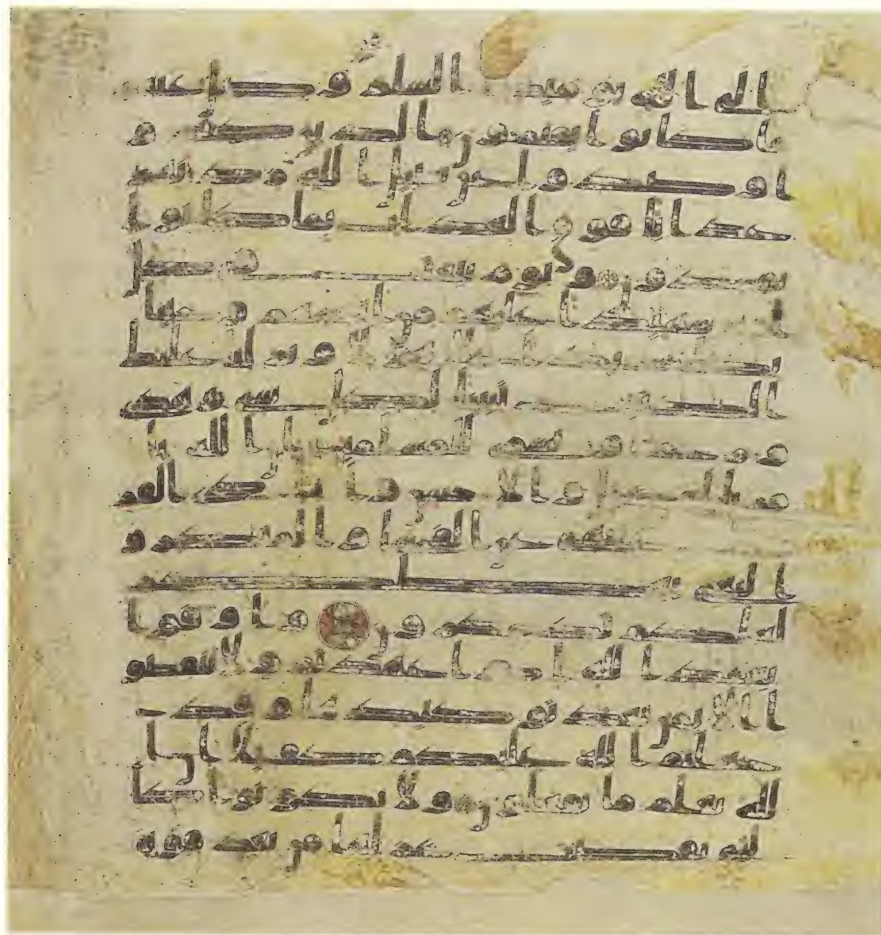 الى الله يومئذ السلم وضل عنهم
ما كانوا يفترون الذين كفرو
ا وصدوا عن سبيل الله زدنهم
عذابا فوق العذاب بما كانوا
يفسدون ويوم نبعث في كل
امة شهيدا عليهم من انفسهم وجئنا
بك شهيدا على هولا ونزلنا عليك
الكتب تبينا لكل شي وهدى
ورحمة وبشرى للمسلمين ان الله يا
مر بالعدل والاحسن وايتاي ذي القر
بى وينهى عن الفحشا والمنكر و
البغي يعظكم
لعلكم تذكرون واوفوا
بعهد الله اذا عهدتم ولا تنقضو
ا الايمن بعد توكيدها وقد
جعلتم الله عليكم كفيلا ان ا
لله يعلم ما تفعلون ولا تكونوا كا
لتي نقضت غزلها من بعد قوة